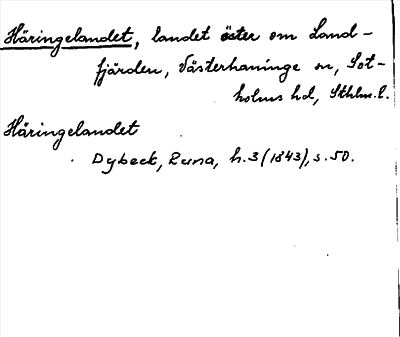 Häringelandet, landet öster om Land-
fjärden, Västerhaninge sn, Sot-
holms hd, Sthlm.l.
Häringelandet
Dybeck, Runa, h.3 (1843), s.50.